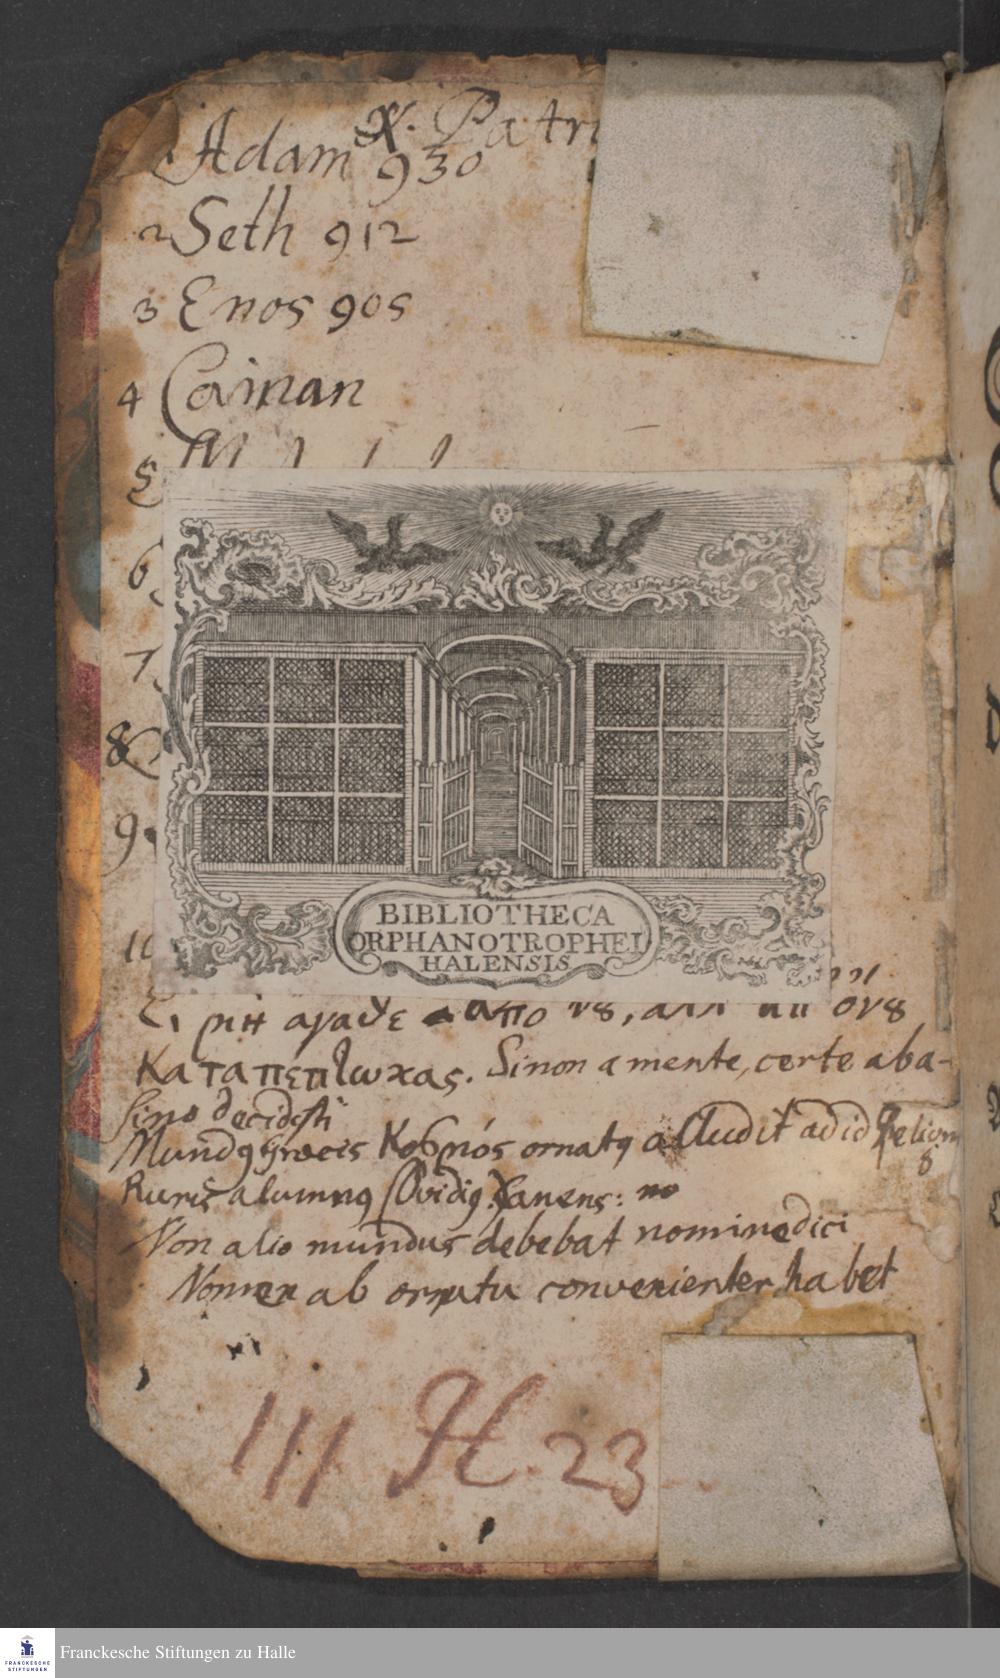 X. Patri
1 Adam 930
2 Seth 912
3 Enos 905
4 Cainan
5
6
7
8
9
10
BIBLIOTHECA
ORPHANOTROPHEI
HALENSIS
αγαθε απο
Καταπεπτωκας. Si non a mente, certe ab a-
sino decidisti
Mundq Græcis Κοσμός ornatq alludit ad id
Ruris alumnq Ovidiq
Non alio mundus debebat nomine dici
Nomen ab ornatu convenienter habet
III H. 23
Franckesche Stiftungen zu Halle
FRANCKESCHE
STIFTUNGEN